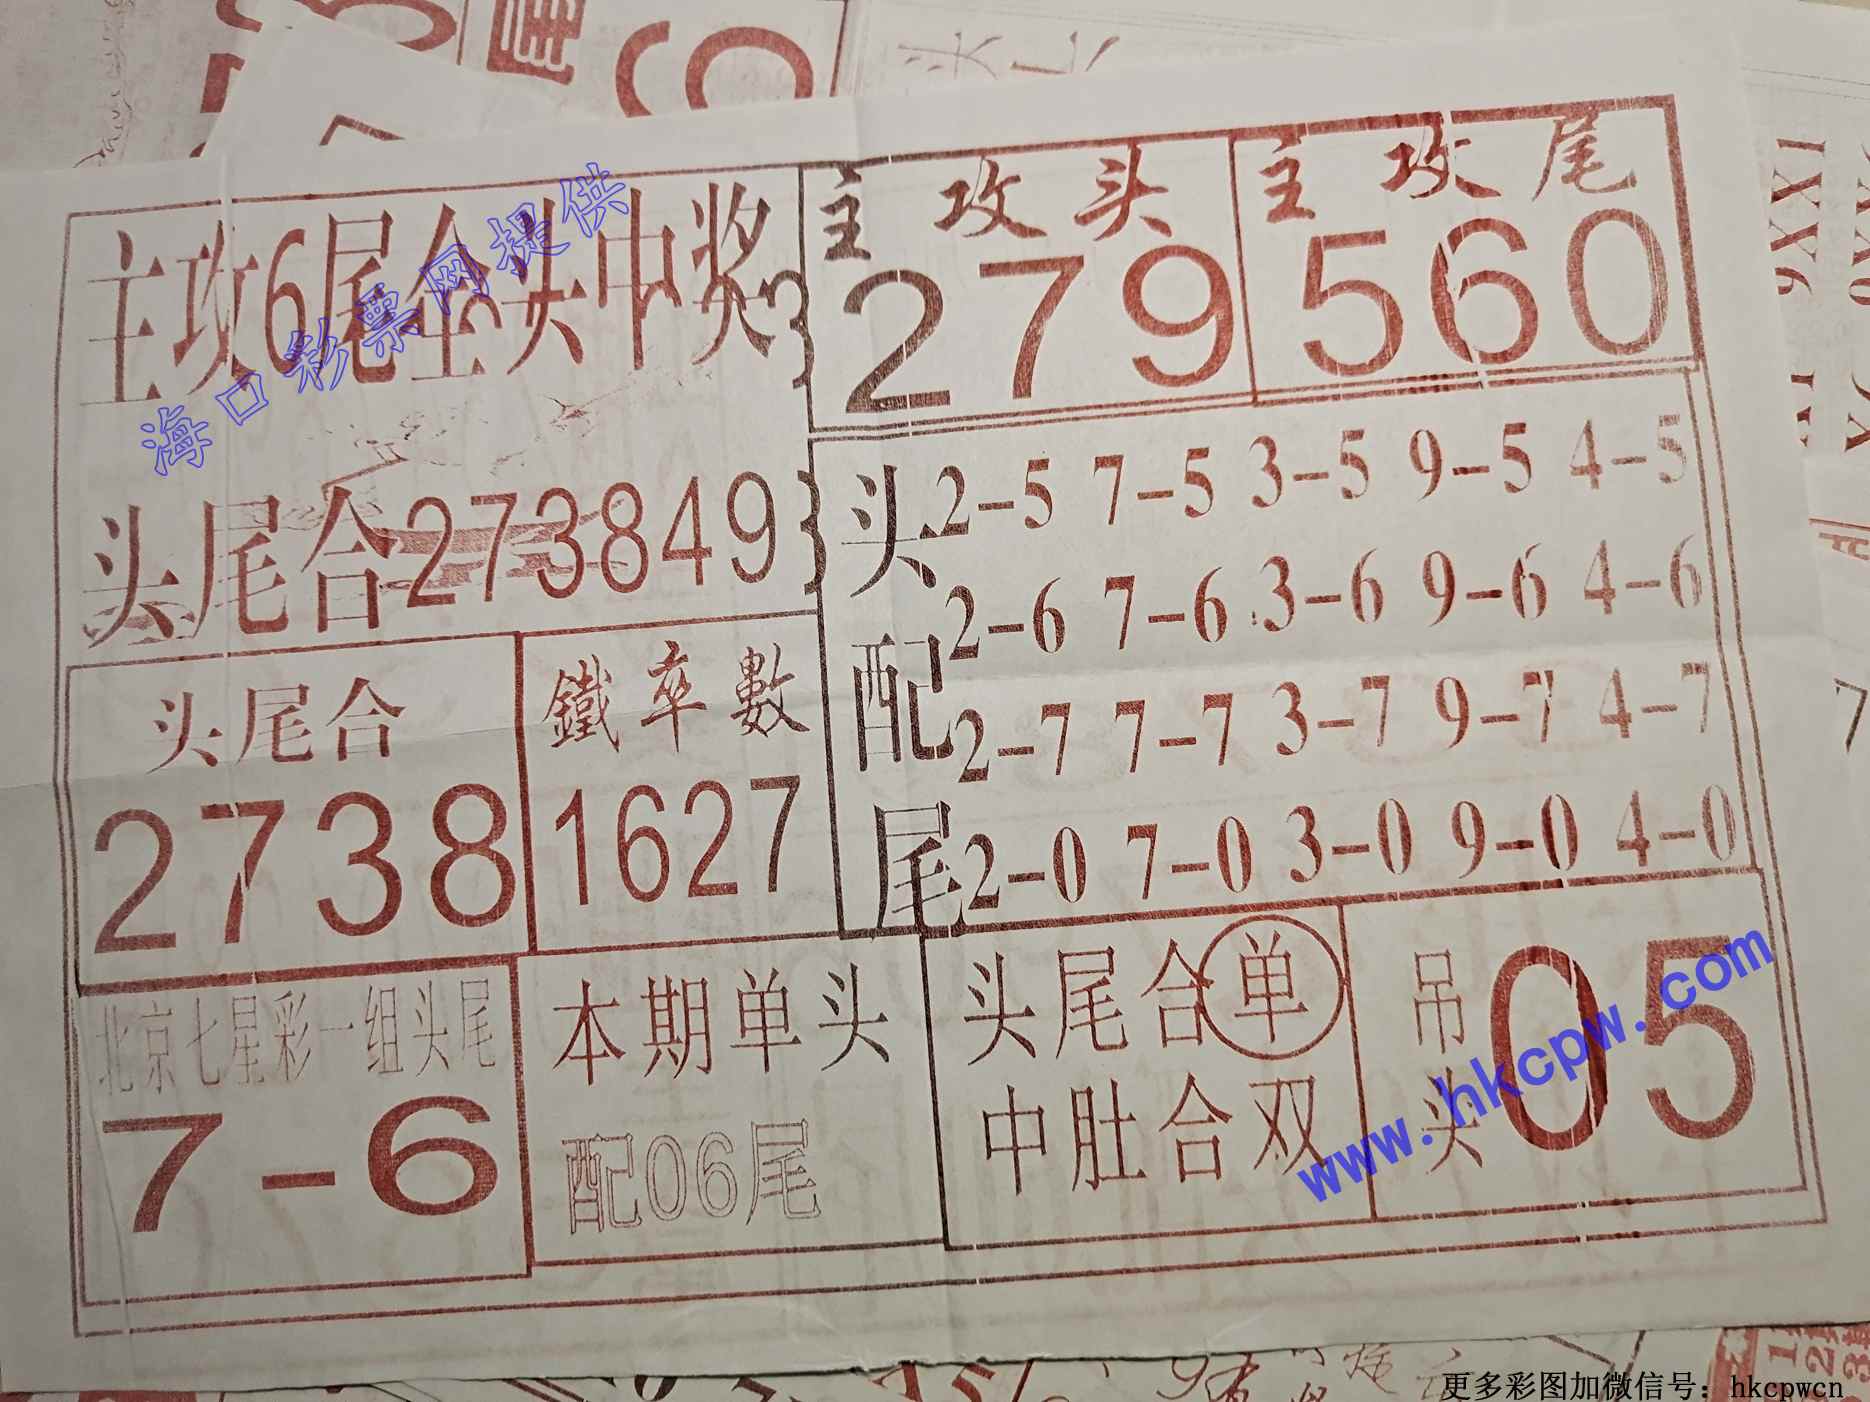 主攻6尾全头中奖
海口彩票网提供
头尾合273849
主攻头
279
主攻尾
560
头配尾
2-5 7-5 3-5 9-5 4-5
2-6 7-6 3-6 9-6 4-6
2-7 7-7 3-7 9-7 4-7
2-0 7-0 3-0 9-0 4-0
头尾合
2738
鐵率數
1627
北京七星彩一组头尾
7-6
本期单头
配06尾
头尾合单
中肚合双
吊头
05
www.hkcpw.com
更多彩图加微信号：hkcpwcn